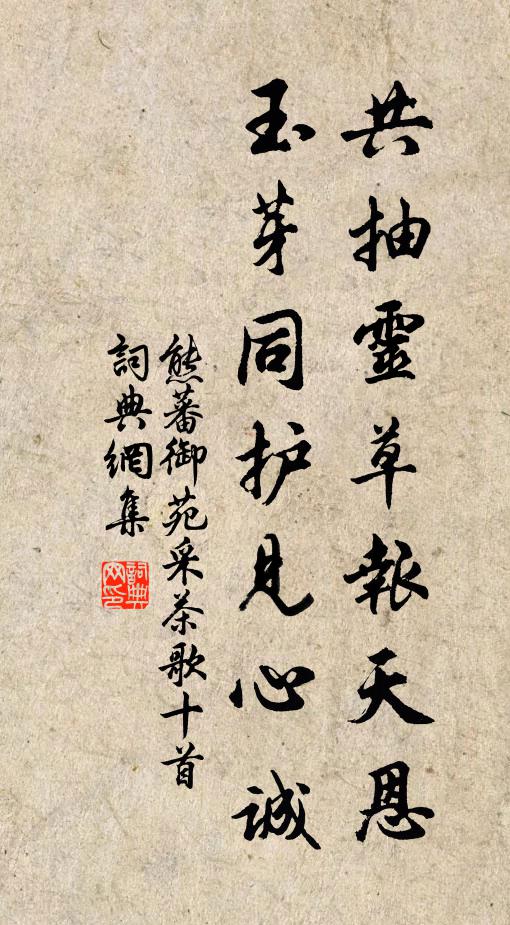 共抽靈草報天恩
玉芽同护見心誠
熊蕃御苑采茶歌十首
詞典網集
詞典
网印